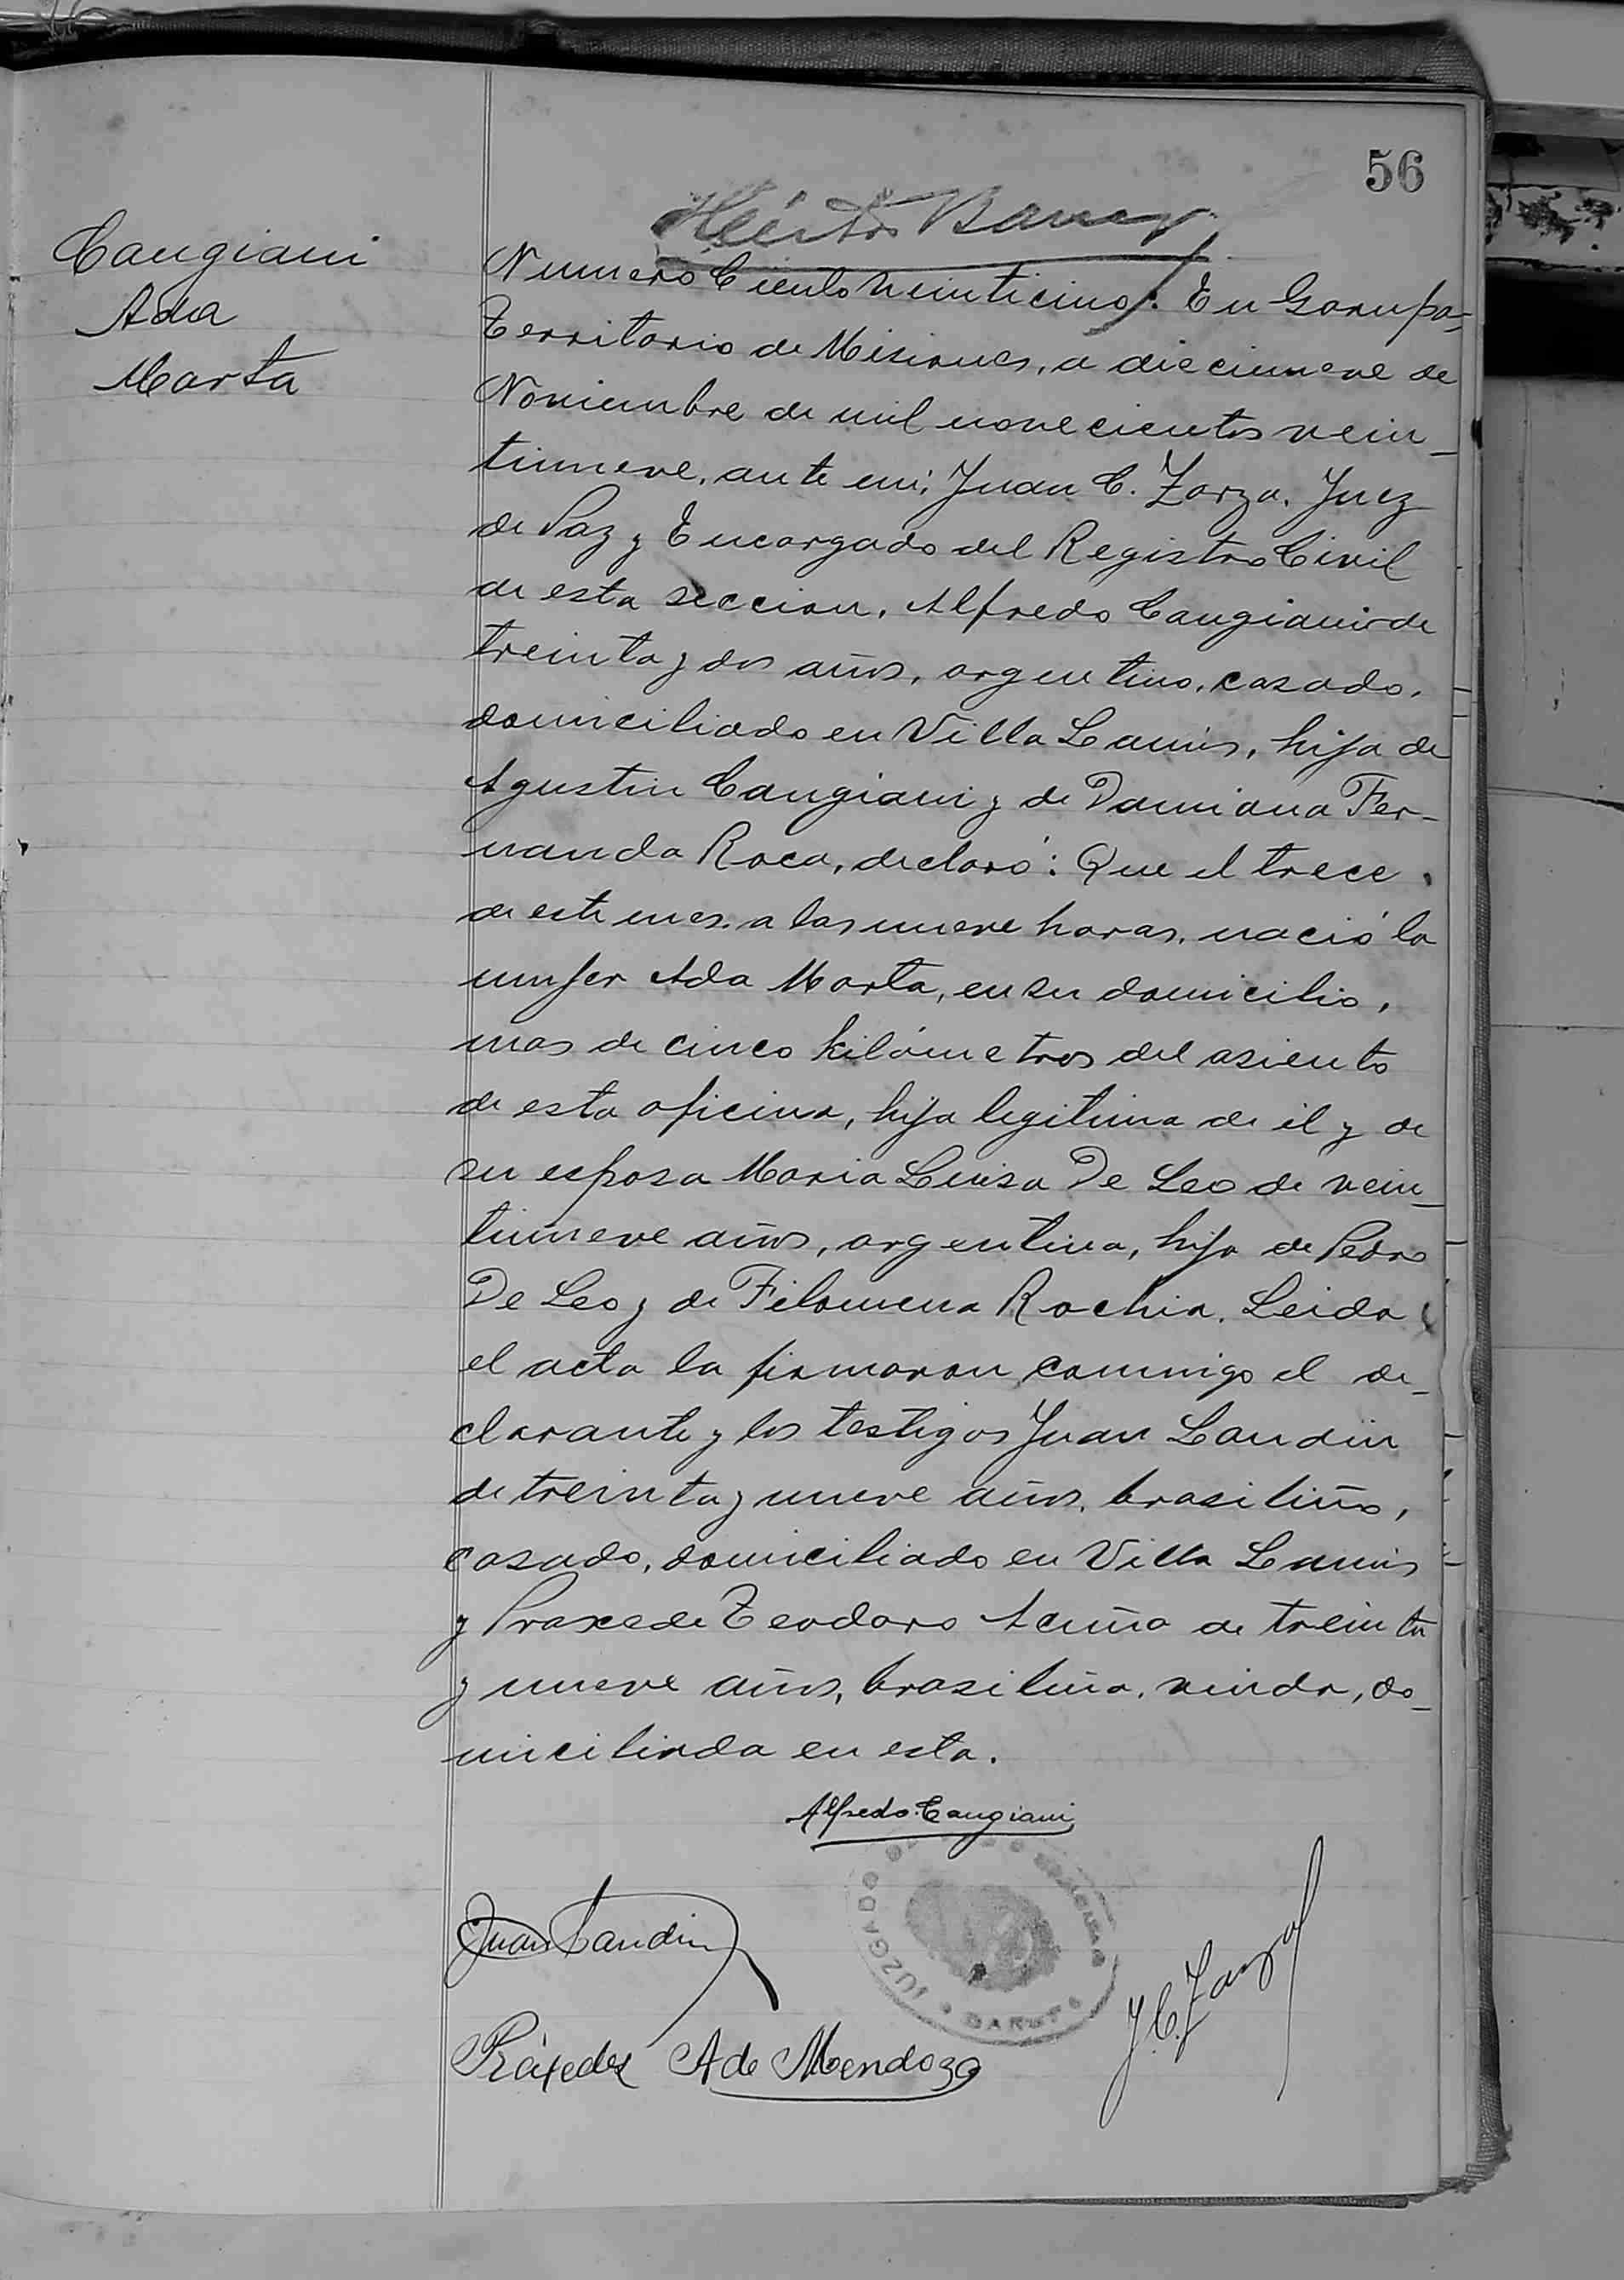 56
Cangiani
Ada
Marta
Numero Ciento Veinticinco: En Garupa,
Territorio de Misiones, a diecinueve de
Noviembre de mil novecientos vein_
tinueve, ante mi, Juan C. Zarza, Juez
de Paz y Encargado del Registro Civil
de esta seccion, Alfredo Cangiani de
treinta y dos años, argentino, casado,
domiciliado en Villa Lanús, hijo de
Agustin Cangiani y de Damiana Fer-
nanda Roca, declaró: Que el trece
de este mes, a las nueve horas, nació la
mujer Ada Marta, en su domicilio,
mas de cinco kilómetros del asiento
de esta oficina, hija legitima de él y de
su esposa Maria Luisa De Leo de vein_
tinueve años, argentina, hija de Pedro
De Leo y de Filomena Rochia. Leida
el acta la firmaron conmigo el de_
clarante y los testigos Juan Landin
de treinta y nueve años, brasileño,
casado, domiciliado en Villa Lanús
y Praxede Teodora Acuña de treinta
y nueve años, brasileña, viuda, do_
miciliada en esta.
Alfredo Cangiani
Juan Landin
JUZGADO
J.C. Zarza
Práxedes A de Mendoza